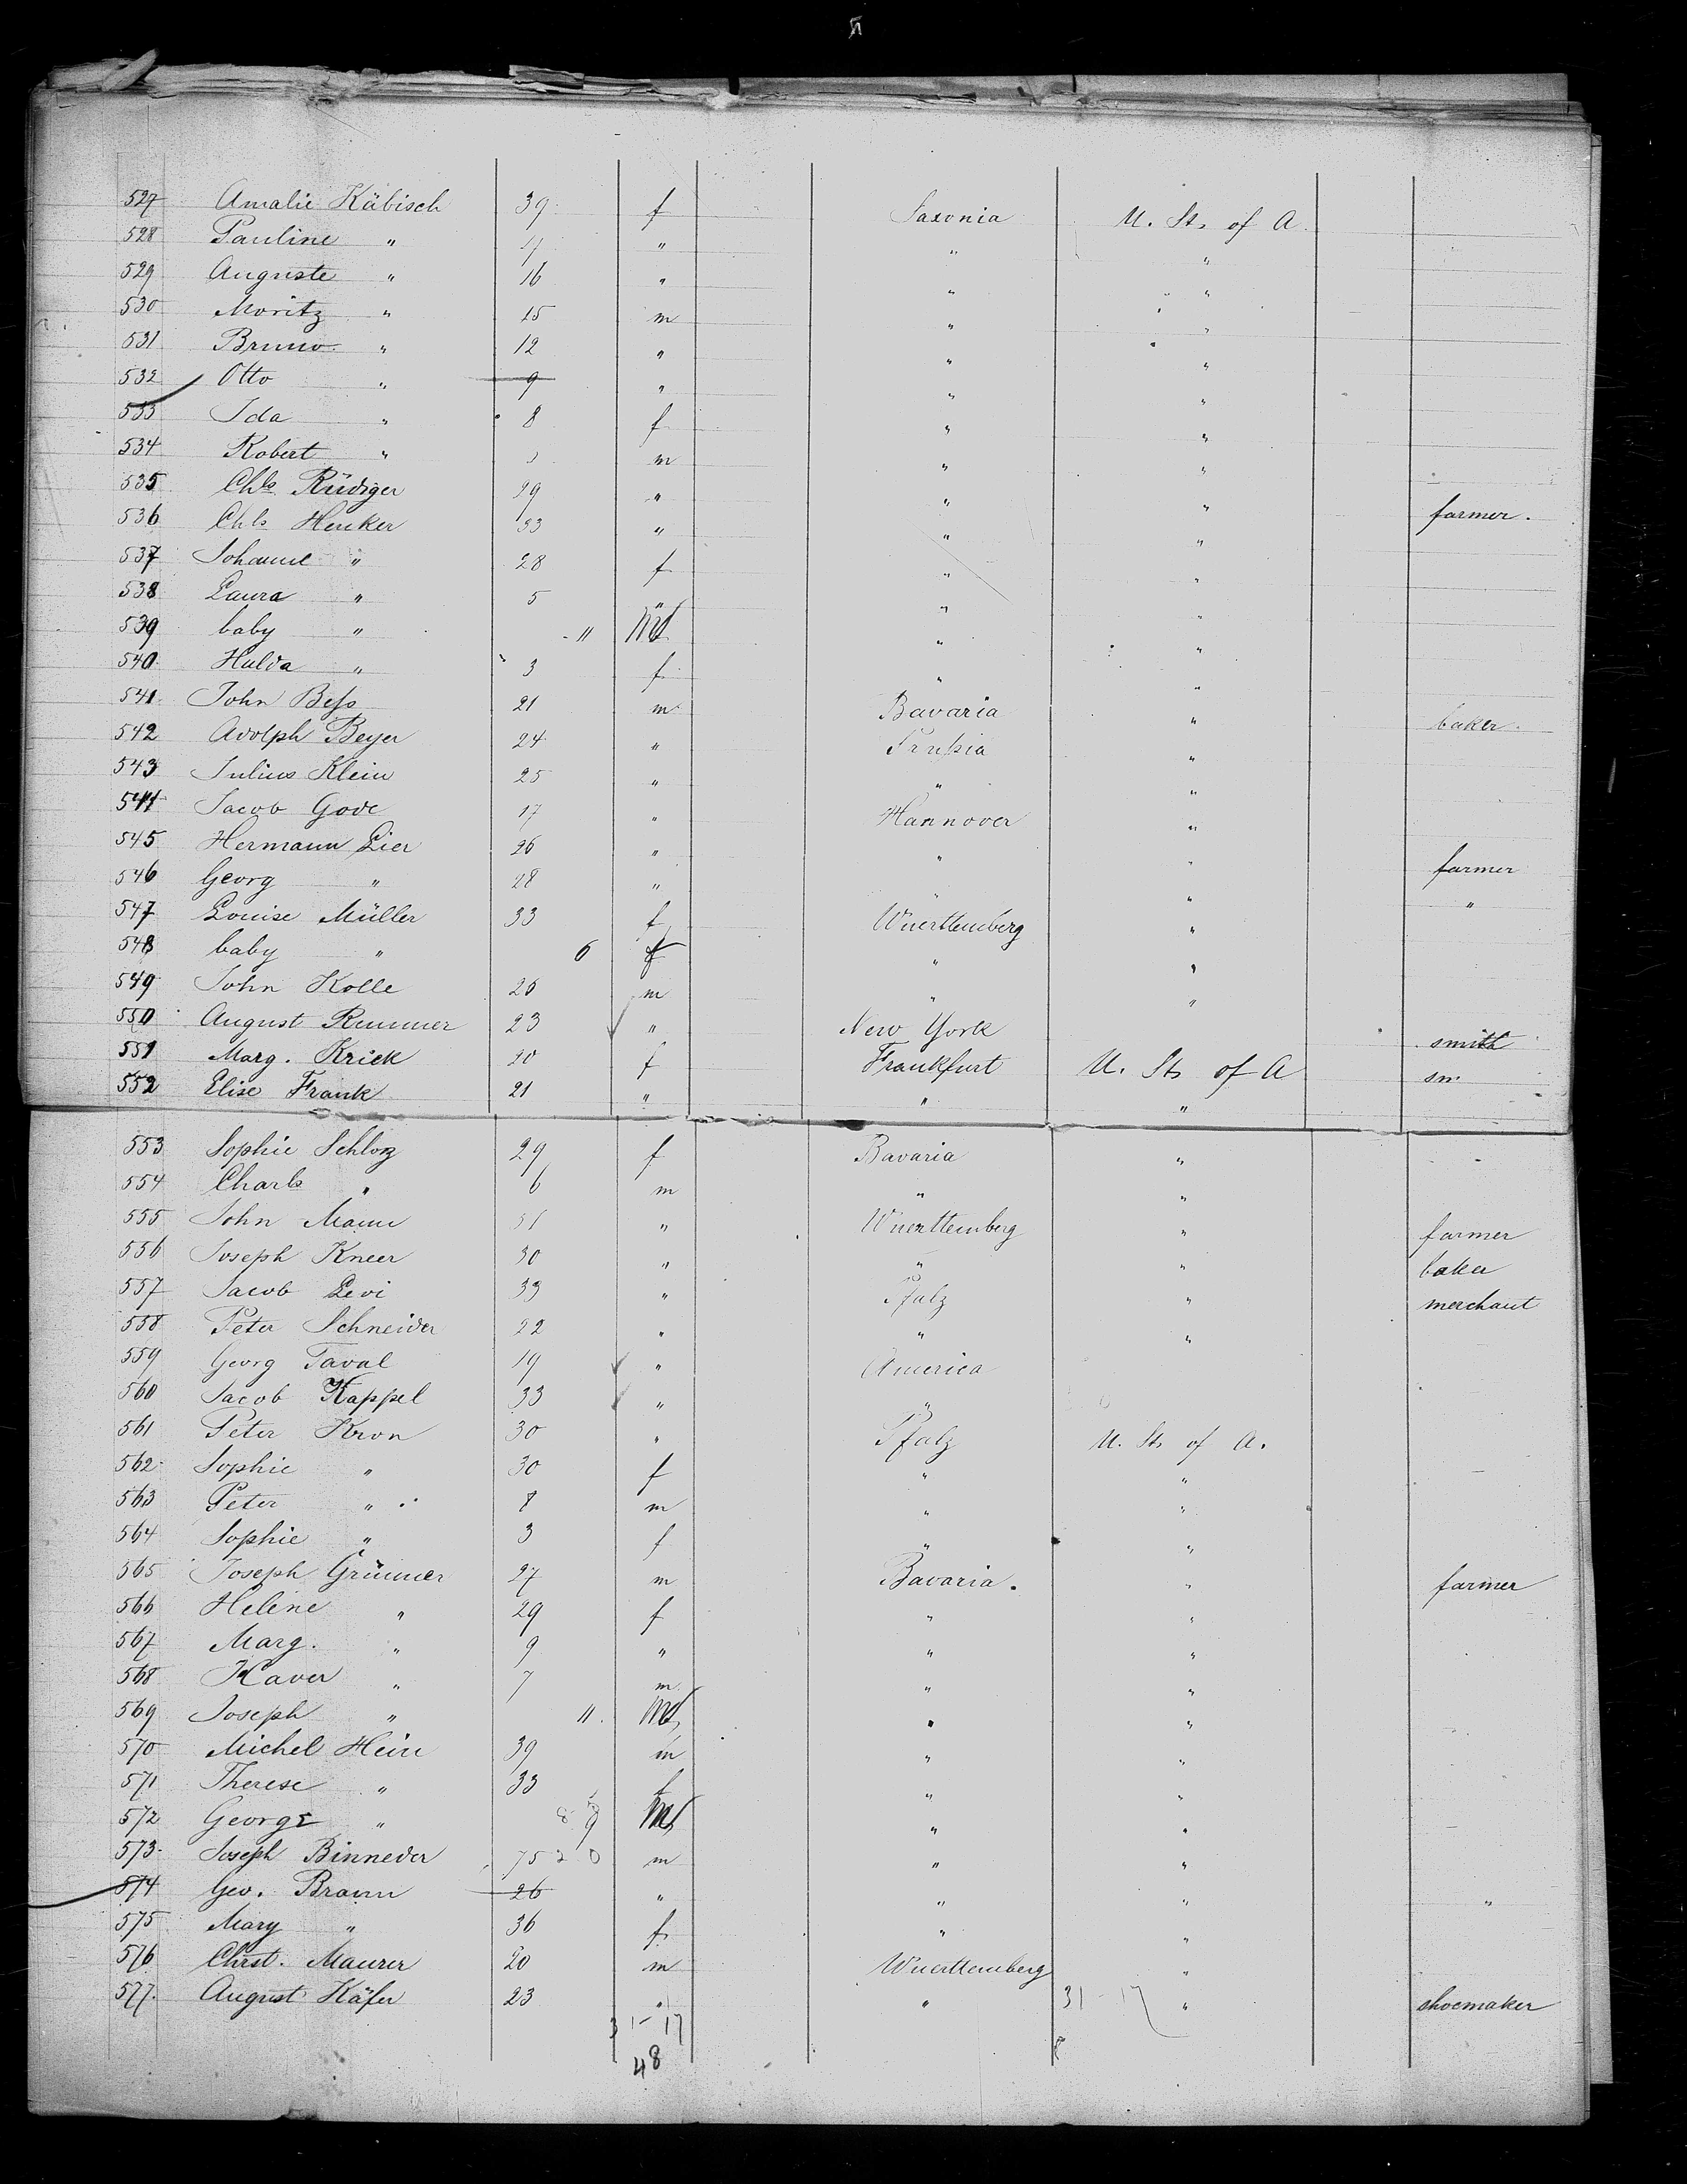 527 Amalie Käbisch 39 f Saxonia U. Sts of A.
528 Pauline " " " "
529 Auguste " 16 " " "
530 Moritz " 15 m " "
531 Bruno " 12 " " "
532 Otto " 9 " " "
533 Ida " 8 f " "
534 Robert " m " "
535 Chls Rüdiger 29 " " " farmer.
536 Chls Henker 33 " " "
537 Johanne " 28 f " "
538 Laura " 5 " " "
539 baby " 11 " "
540 Hulda " 3 f " "
541 John Beſs 21 m Bavaria " baker.
542 Adolph Beyer 24 " Pruſsia "
543 Julius Klein 25 " " "
544 Jacob Gode 17 " Hannover "
545 Hermann Lier 26 " " " farmer
546 Georg " 28 " " " "
547 Louise Müller 33 f Wuerttemberg "
548 baby " 6 f " "
549 John Kolle 25 m " "
550 August Rummer 23 " New York smith
551 Marg. Krick 20 f Frankfurt U. Sts of A sm
552 Elise Frank 21 " " "
553 Sophie Schloz 29 f Bavaria "
554 Charls " 6 m " "
555 John Mann 31 " Wuerttemberg " farmer
556 Joseph Kneer 30 " " " baker
557 Jacob Levi 33 " Pfalz " merchant
558 Peter Schneider 22 " " "
559 Georg Taval 19 " America
560 Jacob Kappel 33 " "
561 Peter Kron 30 " Pfalz U. Sts of A.
562 Sophie " 30 f " "
563 Peter " 8 m " "
564 Sophie " 3 f " "
565 Joseph Grümmer 27 m Bavaria. " farmer
566 Helene " 29 f " "
567 Marg. " 9 " " "
568 Xaver " 7 m " "
569 Joseph " 11. " "
570 Michel Hein 39 m " "
571 Therese " 33 f " "
572 George " 9 " "
573 Joseph Binneder 75 m " "
574 Geo. Braun 26 " " " "
575 Mary " 36 f " "
576 Christ. Maurer 20 m Wuerttemberg "
577. August Käfer 23 " " 31-17 " shoemaker
31-17
48